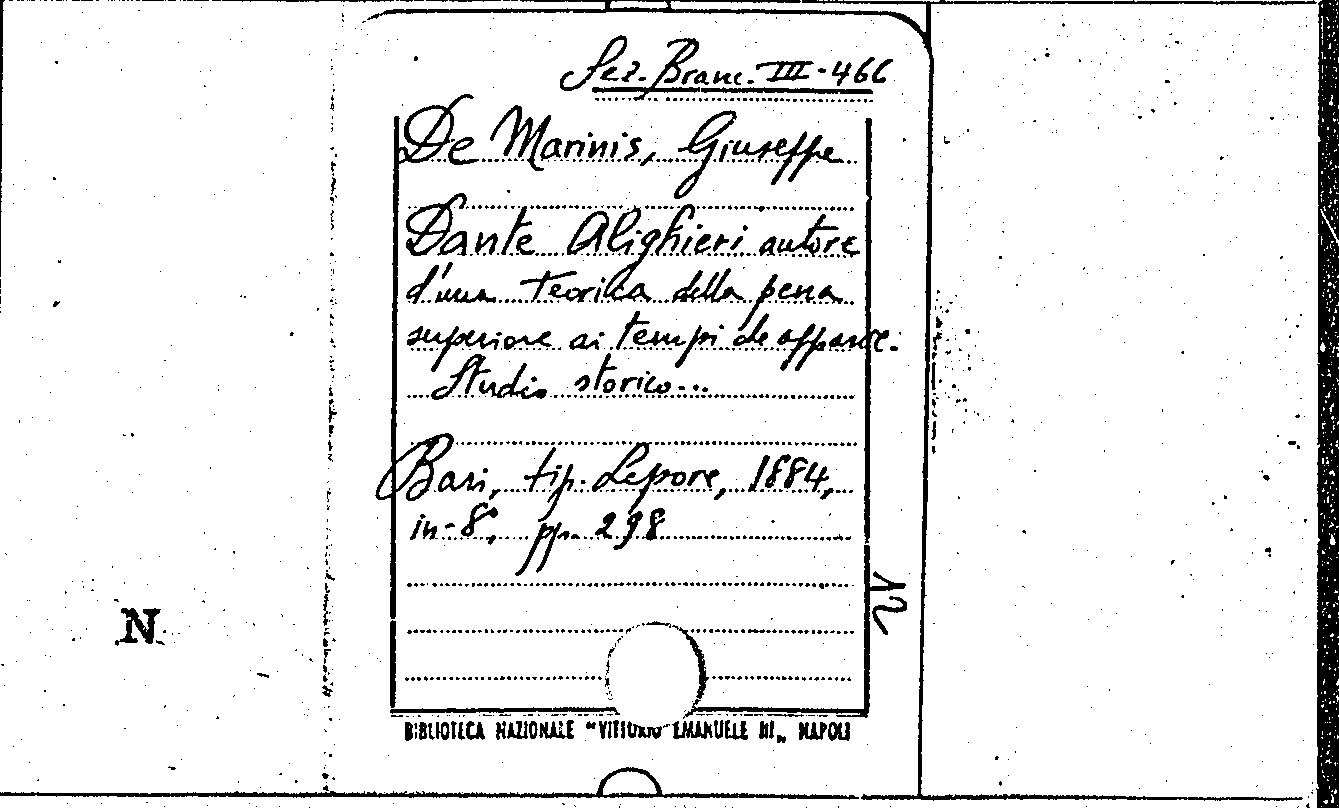 Sez. Branc. III-466
De Marinis, Giuseppe
Dante Alighieri autore
d'una teorica della pena
superiore ai tempi che apparve.
Studio storico...
Bari, tip. Lepore, 1884,
in-8°, pp. 298
N
BIBLIOTECA NAZIONALE "VITTORIO EMANUELE III„ NAPOLI